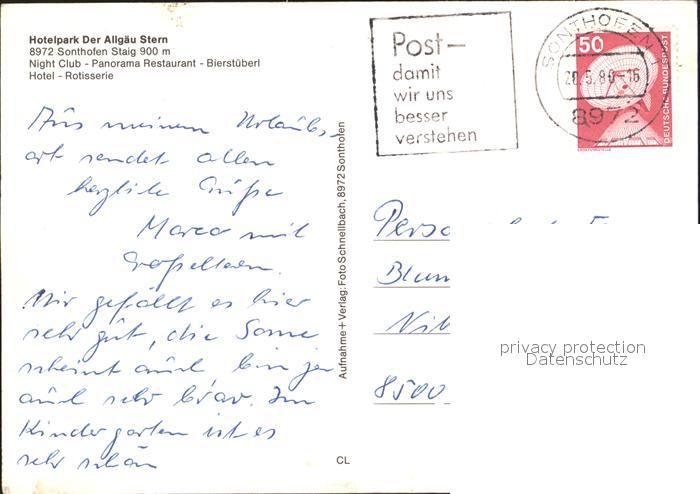 Hotelpark Der Allgäu Stern
8972 Sonthofen Staig 900 m
Night Club - Panorama Restaurant - Bierstüberl
Hotel - Rotisserie
Aus meinem Urlaubs-
ort sendet allen
herzliche Grüße
Marco mit
Großeltern.
Mir gefällt es hier
sehr gut, die Sonne
scheint auch bin ja
auch sehr brav. Im
Kindergarten ist es
sehr schön
Aufnahme + Verlag: Foto Schnellbach, 8972 Sonthofen
CL
Post-
damit
wir uns
besser
verstehen
SONTHOFEN 1
-5.80-16
8972
50
DEUTSCHE BUNDESPOST
ERDFUNKSTELLE
Perso
Blum
8500
privacy protection
Datenschutz